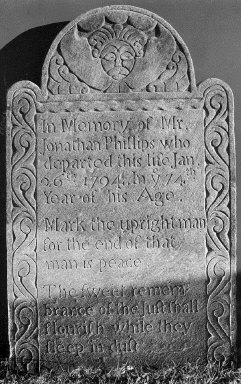 In Memory of Mr.
Jonathan Phillips who
departed this life Jan.
26th 1794. In ye 74th
Year of his Age.
Mark the upright man
for the end of that
man is peace
The sweet remem
brance of the Just shall
flourish while they
sleep in dust